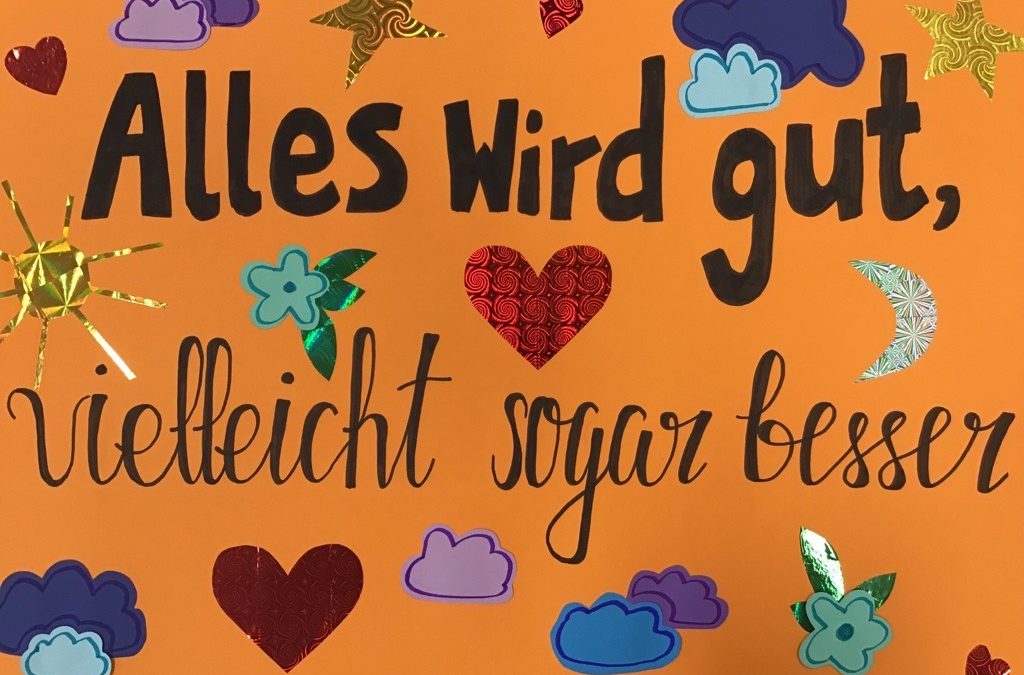 Alles wird gut,
vielleicht sogar besser